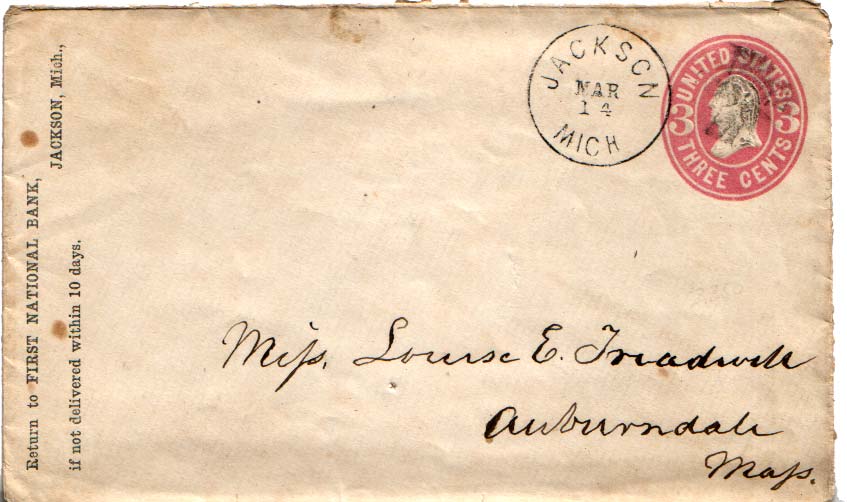 Return to FIRST NATIONAL BANK,
JACKSON, Mich.,
if not delivered within 10 days.
JACKSON
MAR
14
MICH
UNITED STATES
3 3
THREE CENTS
Miſs. Louise E. Treadwell
Auburndale
Maſs.